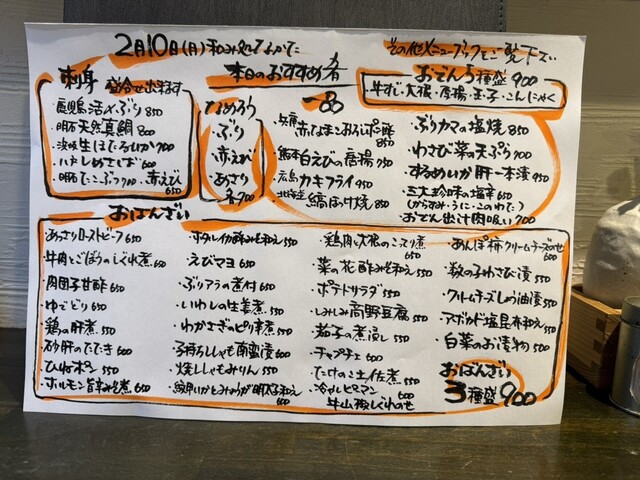 2月10日(月) 和み処 なかた
その他メニューブックをご覧下さい
本日のおすすめ肴
刺身 盛合せ出来ます
・鹿児島活〆ぶり 850
・明石天然真鯛 800
・浜坂生ほたるいか 700
・八戸しめさば 600
・明石たこぶつ 700 ・赤えび 650
なめろう
・ぶり
・赤えび
・あさり
各700
一品
・兵庫 赤なまこおろしポン酢 850
・熊本 白えびの唐揚 750
・広島 カキフライ 950
・北海道 縞ほっけ焼 850
・ぶりカマの塩焼 850
・わさび菜の天ぷら 700
・するめいか肝一本漬 950
・三大珍味の塩辛 650
(からすみ・うに・このわた)
・おでん出汁肉吸い 700
おでん5種盛 900
・牛すじ・大根・厚揚・玉子・こんにゃく
おばんざい
・あっさりローストビーフ 650
・牛肉とごぼうのしぐれ煮 650
・肉団子甘酢 650
・ゆでどり 650
・鶏の肝煮 550
・砂肝のたたき 600
・ひねポン 550
・ホルモン旨辛みそ煮 650
・ホタルイカ酢みそ和え 550
・えびマヨ 550
・ぶりアラの煮付 650
・いわしの生姜煮 550
・わかさぎのピリ辛煮 550
・子持ちししゃも南蛮漬 600
・焼ししゃもみりん 550
・紋甲いかとみつばが明太子和え 600
・鶏肉と大根のこってり煮 650
・菜の花酢みそ和え 550
・ポテトサラダ 550
・しみしみ高野豆腐 550
・茄子の煮浸し 550
・チャプチェ 600
・たけのこ土佐煮 550
・冷やしピーマン 600
牛山椒しぐれのせ
・あんぽ柿クリームチーズのせ 600
・数の子わさび漬 550
・クリームチーズしょうゆ漬 550
・アボカド塩昆布和え 550
・白菜のお漬物 500
おばんざい
3種盛 900